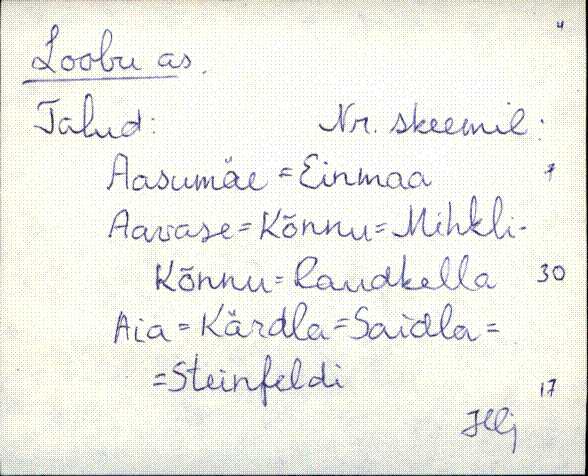 Loobu as.
Talud: Nr. skeemil:
Aasumäe = Einmaa
Aavase = Kõnnu = Mihkli-
Kõnnu = Raudkella 30
Aia = Kärdla = Saidla =
= Steinfeldi 17